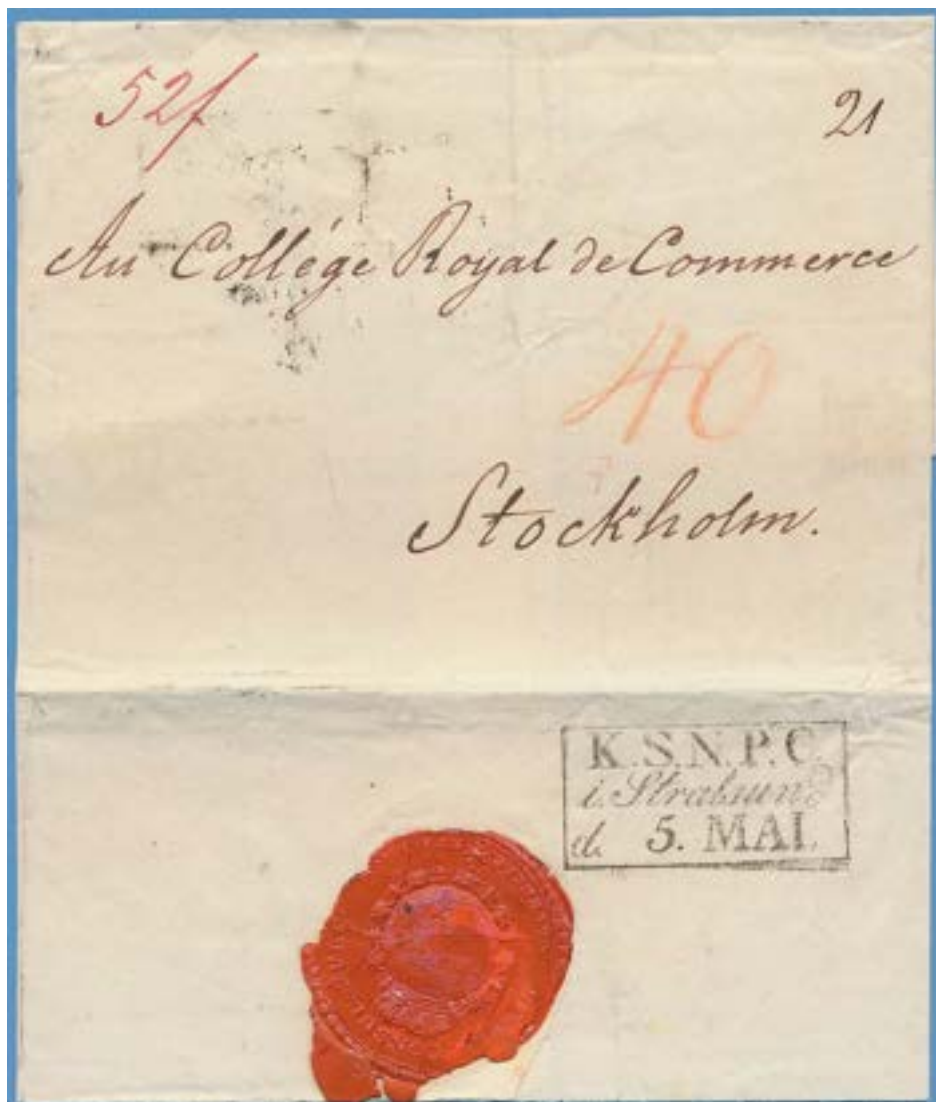 52f
21
Au Collége Royal de Commerce
40
Stockholm.
K.S.N.P.C.
i. Stralsund
d. 5. MAI.